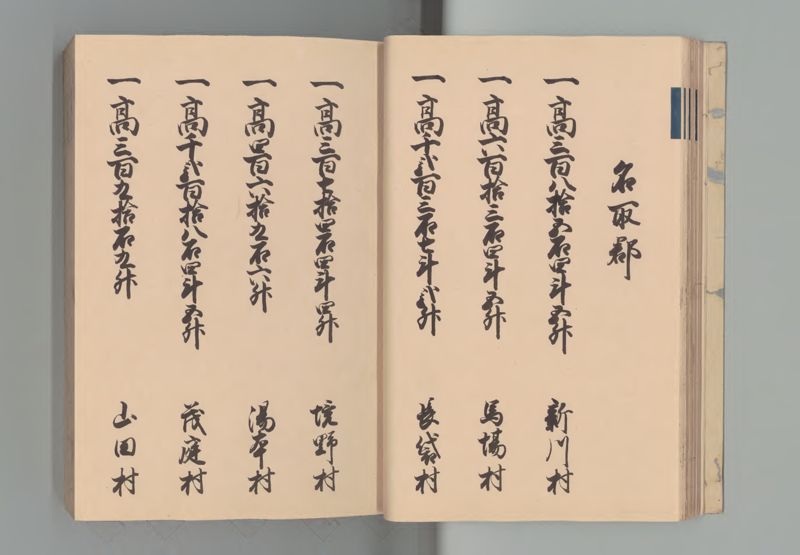 名取郡
一高三百八拾五石四斗五升 新川村
一高六百拾三石四斗五升 馬場村
一高千弐百三石七斗弐升 長袋村
一高三百七拾四石四斗四升 境野村
一高四百六拾九石六升 湯本村
一高千弐百拾八石四斗五升 茂庭村
一高三百九拾石九升 山田村